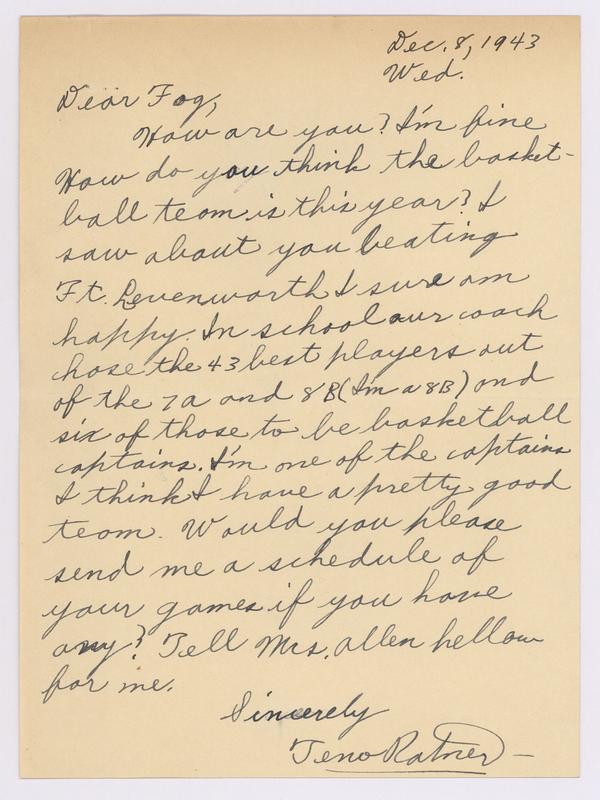 Dec. 8, 1943
Wed.
Dear Fog,
How are you? I'm fine
How do you think the basket-
ball team is this year? I
saw about you beating
Ft. Levenworth I sure am
happy. In school our coach
chose the 43 best players out
of the 7a and 8B (I'm a 8B) and
six of those to be basketball
captains. I'm one of the captains
I think I have a pretty good
team. Would you please
send me a schedule of
your games if you have
any? Tell Mrs. Allen hellow
for me.
Sincerely
Teno Ratner